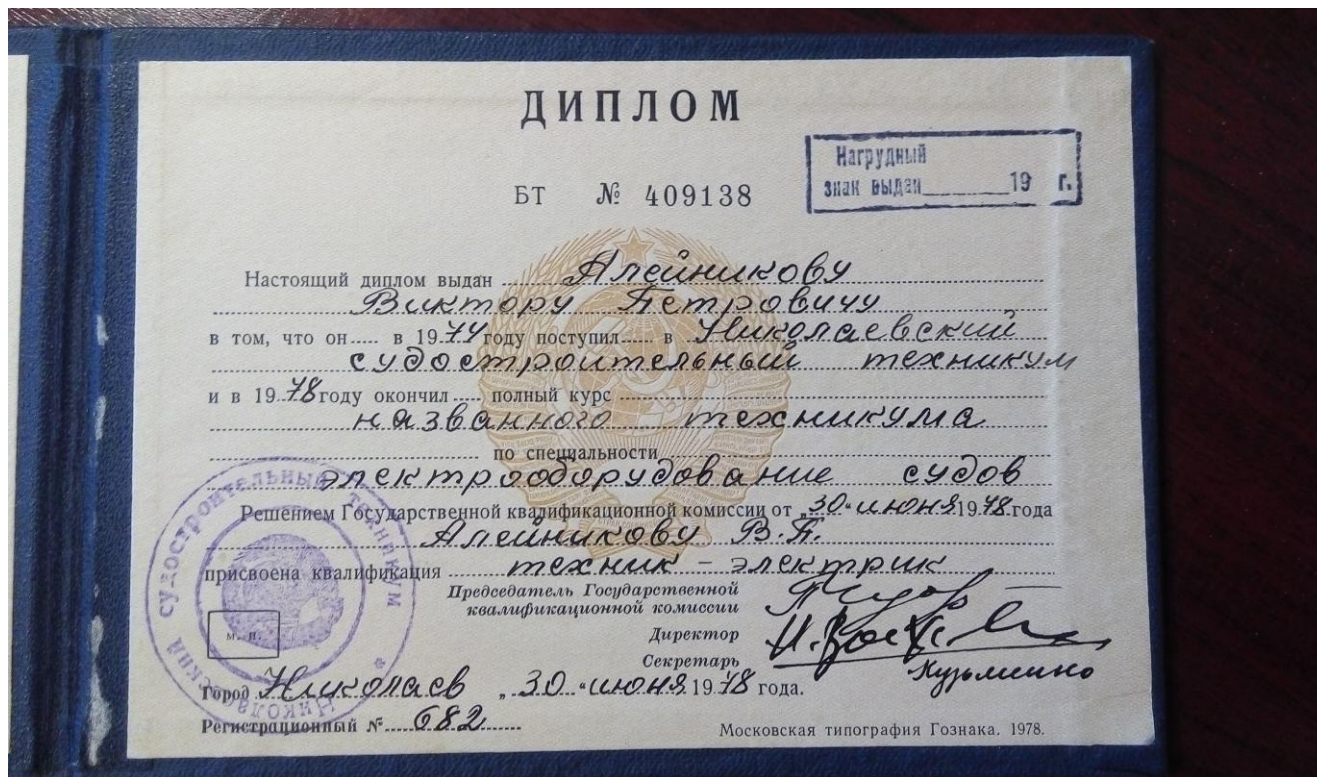 ДИПЛОМ
Нагрудный
знак выдан 19 г.
БТ № 409138
Настоящий диплом выдан Алейникову
Виктору Петровичу
в том, что он в 1974 году поступил в Николаевский
судостроительный техникум
и в 1978 году окончил полный курс
названного техникума
по специальности
электрооборудование судов
Решением Государственной квалификационной комиссии от „30“ июня 1978 года
Алейникову В.П.
присвоена квалификация техник - электрик
Председатель Государственной
квалификационной комиссии
Директор
Секретарь Кузьменко
м. п.
Николаевский судостроительный техникум
Город Николаев „30“ июня 1978 года.
Регистрационный № 682
Московская типография Гознака. 1978.